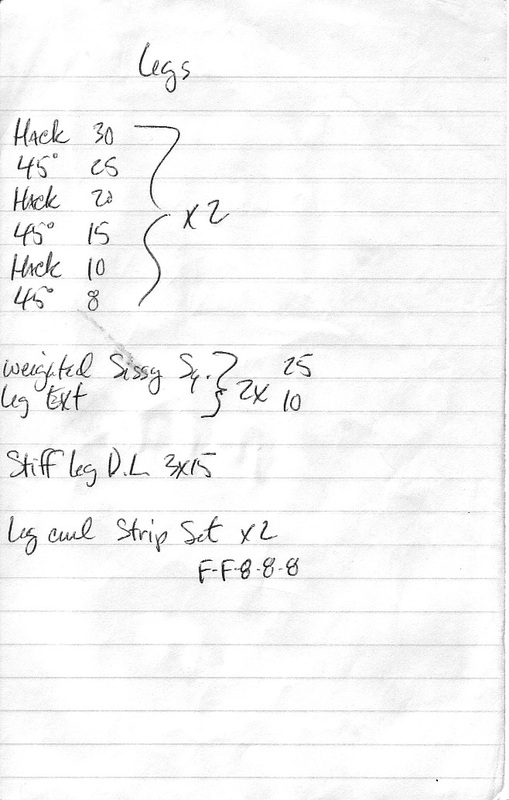 Legs
Hack 30
45° 25
Hack 20
45° 15
Hack 10
45° 8
x2
weighted Sissy Sq. 25
leg Ext 2x 10
Stiff leg D.L. 3x15
Leg curl Strip Set x2
F-F-8-8-8